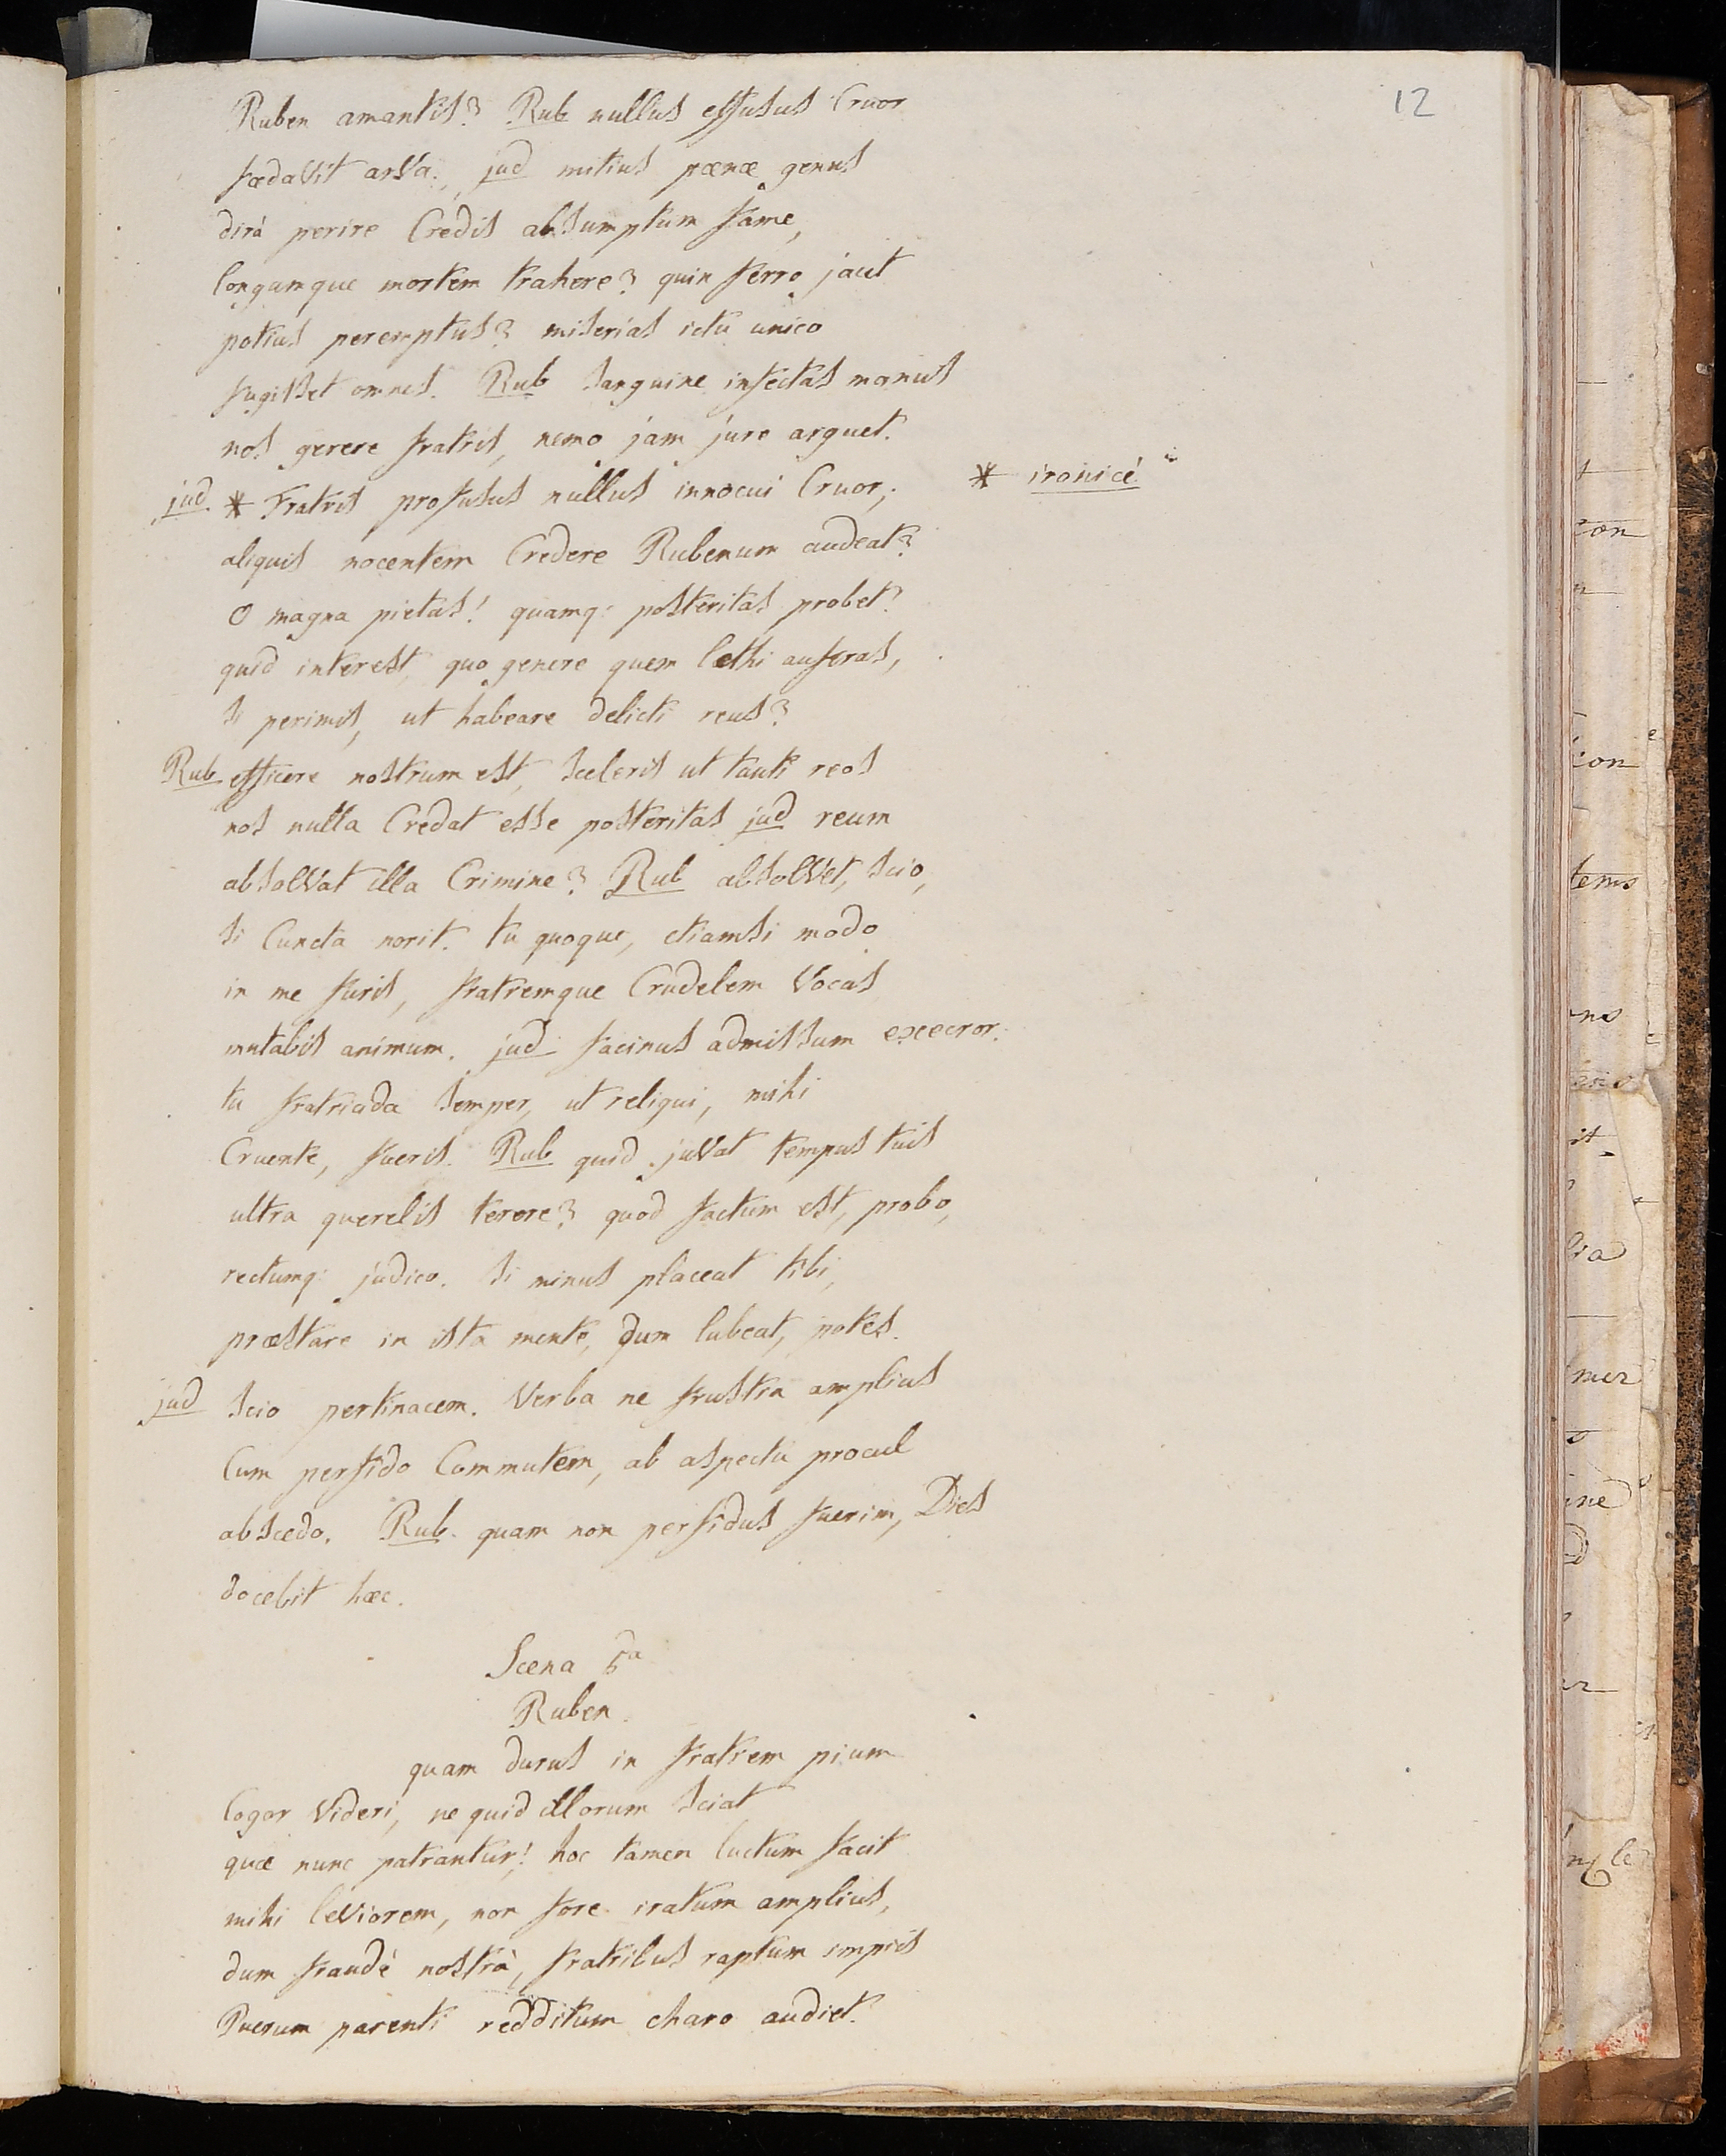 12
Ruben amantis? Rub nullus effusus Cruor
fœdavit arva. jud mitius pœnæ genus
dirà perire Credis absumptum fame,
longamque mortem trahere? quin ferro jacet
potius peremptus? miserias ictu unico
fugisset omnes. Rub sanguine infectas manus
nos gerere fratris, nemo jam jure arguet.
jud. * Fratris profusus nullus innocui Cruor,
* ironicè
aliquis nocentem Credere Rubenum audeat?
O magna pietas! quamq: posteritas probet?
quid interest, quo genere quem lethi auferas,
si perimis, ut habeare delicti reus?
Rub efficere nostrum est, sceleris ut tanti reos
nos nulla Credat esse posteritas jud reum
absolvat illa Crimine? Rub absolvet, scio,
si Cuncta norit. tu quoque, etiamsi modo
in me furis, fratremque Crudelem Vocas
mutabis animum. jud facinus admissum execror.
tu fratricida semper, ut reliqui, mihi
Cruente, fueris. Rub quid juvat tempus tuis
ultra querelis terere? quod factum est, probo,
rectumq: judico. si minus placeat tibi,
præstare in ista mente, dum lubeat, potes.
jud scio pertinacem. Verba ne frustra amplius
Cum perfido Commutem, ab aspectu procul
abscedo. Rub. quam non perfidus fuerim, Dies
docebit hæc.
Scena 5a
Ruben.
quam durus in fratrem pium
Cogor Videri, ne quid illorum sciat
quæ nunc patrantur! hoc tamen luctum facit
mihi leviorem, non fore iratum amplius,
dum fraudè nostrà, fratribus raptum impiis
Puerum parenti redditum charo audiet.